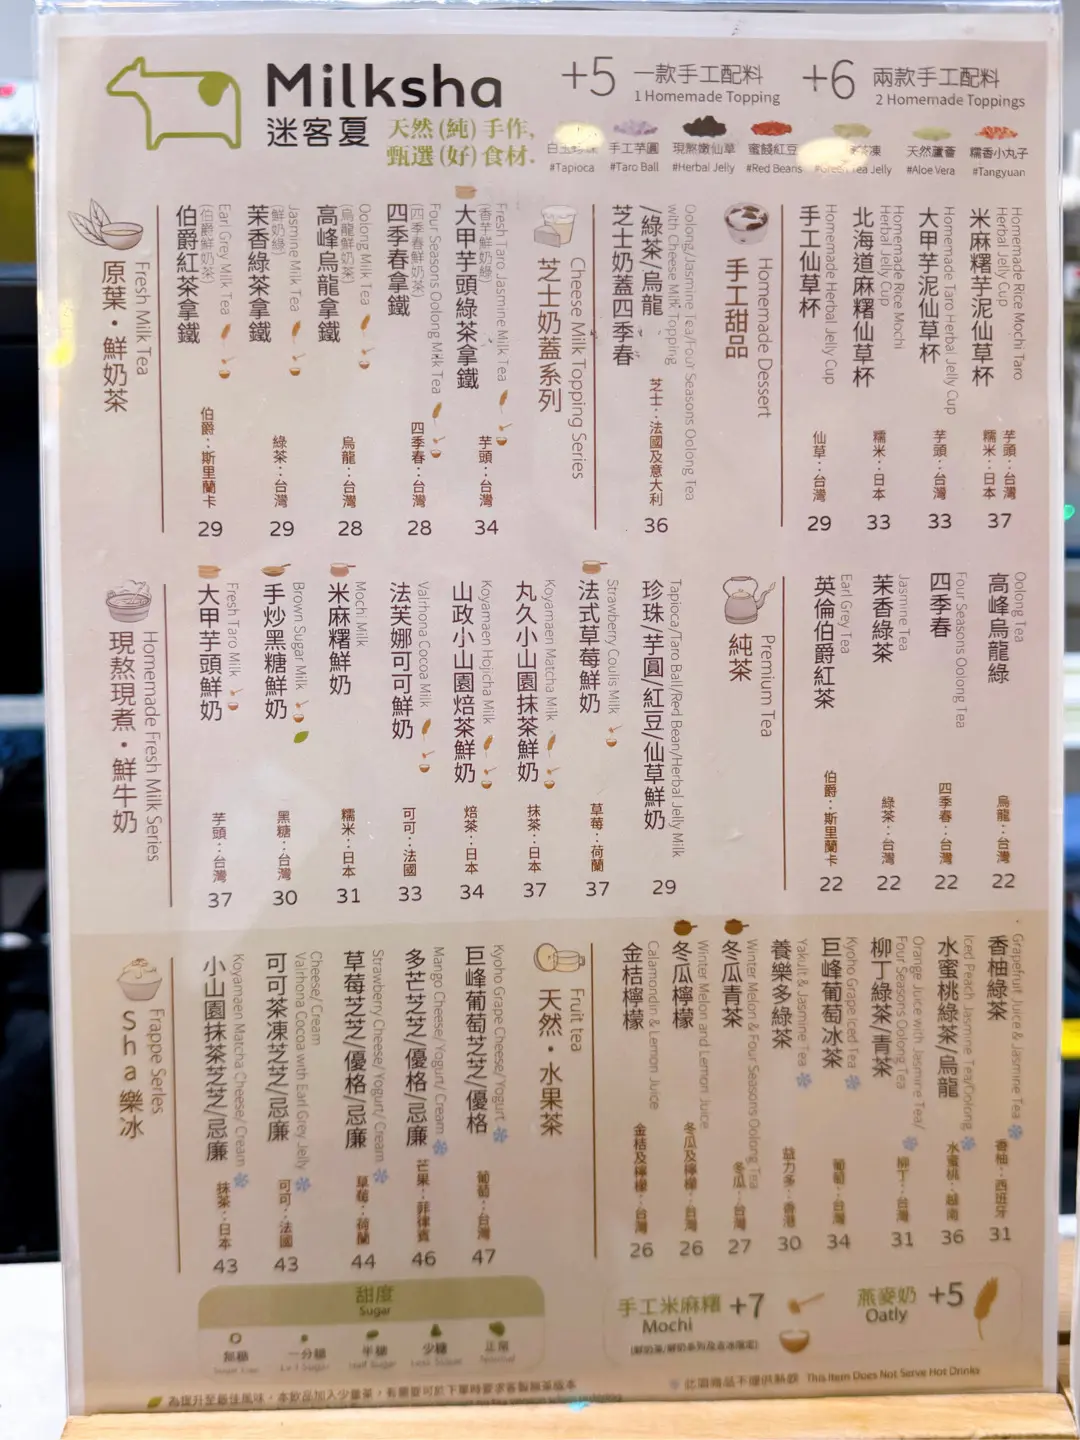 Milksha
迷客夏
天然(純)手作,
甄選(好)食材.
+5 一款手工配料
1 Homemade Topping
+6 兩款手工配料
2 Homemade Toppings
#Tapioca
手工芋圓
#Taro Ball
現熬嫩仙草
#Herbal Jelly
蜜餞紅豆
#Red Beans
Tea Jelly
天然蘆薈
#Aloe Vera
糯香小丸子
#Tangyuan
Fresh Milk Tea
原葉・鮮奶茶
Earl Grey Milk Tea
(伯爵鮮奶茶)
伯爵紅茶拿鐵
伯爵：斯里蘭卡
29
Jasmine Milk Tea
(鮮奶綠)
茉香綠茶拿鐵
綠茶：台灣
29
Oolong Milk Tea
(烏龍鮮奶茶)
高峰烏龍拿鐵
烏龍：台灣
28
Four Seasons Oolong Milk Tea
(四季春鮮奶茶)
四季春拿鐵
四季春：台灣
28
Fresh Taro Jasmine Milk Tea
(香芋鮮奶綠)
大甲芋頭綠茶拿鐵
芋頭：台灣
34
Cheese Milk Topping Series
芝士奶蓋系列
Oolong/Jasmine Tea/Four Seasons Oolong Tea
with Cheese Milk Topping
/綠茶/烏龍
芝士奶蓋四季春
芝士：法國及意大利
36
Homemade Dessert
手工甜品
Homemade Herbal Jelly Cup
手工仙草杯
仙草：台灣
29
Homemade Rice Mochi
Herbal Jelly Cup
北海道麻糬仙草杯
糯米：日本
33
Homemade Taro Herbal Jelly Cup
大甲芋泥仙草杯
芋頭：台灣
33
Homemade Rice Mochi Taro
Herbal Jelly Cup
米麻糬芋泥仙草杯
芋頭：台灣
糯米：日本
37
Homemade Fresh Milk Series
現熬現煮・鮮牛奶
Fresh Taro Milk
大甲芋頭鮮奶
芋頭：台灣
37
Brown Sugar Milk
手炒黑糖鮮奶
黑糖：台灣
30
Mochi Milk
米麻糬鮮奶
糯米：日本
31
Valrhona Cocoa Milk
法芙娜可可鮮奶
可可：法國
33
Koyamaen Hojicha Milk
山政小山園焙茶鮮奶
焙茶：日本
34
Koyamaen Matcha Milk
丸久小山園抹茶鮮奶
抹茶：日本
37
Strawberry Coulis Milk
法式草莓鮮奶
草莓：荷蘭
37
Tapioca/Taro Ball/Red Bean/Herbal Jelly Milk
珍珠/芋圓/紅豆/仙草鮮奶
29
Premium Tea
純茶
Earl Grey Tea
英倫伯爵紅茶
伯爵：斯里蘭卡
22
Jasmine Tea
茉香綠茶
綠茶：台灣
22
Four Seasons Oolong Tea
四季春
四季春：台灣
22
Oolong Tea
高峰烏龍綠
烏龍：台灣
22
Frappe Series
Sha樂冰
Koyamaen Matcha Cheese/ Cream
小山園抹茶芝芝/忌廉
抹茶：日本
43
Cheese/ Cream
Valrhona Cocoa with Earl Grey Jelly
可可茶凍芝芝/忌廉
可可：法國
43
Strawberry Cheese/ Yogurt/ Cream
草莓芝芝/優格/忌廉
草莓：荷蘭
44
Mango Cheese/ Yogurt/ Cream
多芒芝芝/優格/忌廉
芒果：菲律賓
46
Kyoho Grape Cheese/ Yogurt
巨峰葡萄芝芝/優格
葡萄：台灣
47
Fruit tea
天然・水果茶
Calamondin & Lemon Juice
金桔檸檬
金桔及檸檬：台灣
26
Winter Melon and Lemon Juice
冬瓜檸檬
冬瓜及檸檬：台灣
26
Winter Melon & Four Seasons Oolong Tea
冬瓜青茶
冬瓜：台灣
27
Yakult & Jasmine Tea
養樂多綠茶
益力多：香港
30
Kyoho Grape Iced Tea
巨峰葡萄冰茶
葡萄：台灣
34
Orange Juice with Jasmine Tea/
Four Seasons Oolong Tea
柳丁綠茶/青茶
柳丁：台灣
31
Iced Peach Jasmine Tea/Oolong
水蜜桃綠茶/烏龍
水蜜桃：越南
36
Grapefruit Juice & Jasmine Tea
香柚綠茶
香柚：西班牙
31
甜度
Sugar
無糖
一分糖
半糖
Half Sugar
少糖
Less Sugar
正常
Normal
手工米麻糬 +7
Mochi
燕麥奶 +5
Oatly
此圖商品不提供熱飲 This Item Does Not Serve Hot Drinks
為提升至最佳風味，本飲品加入少量茶，